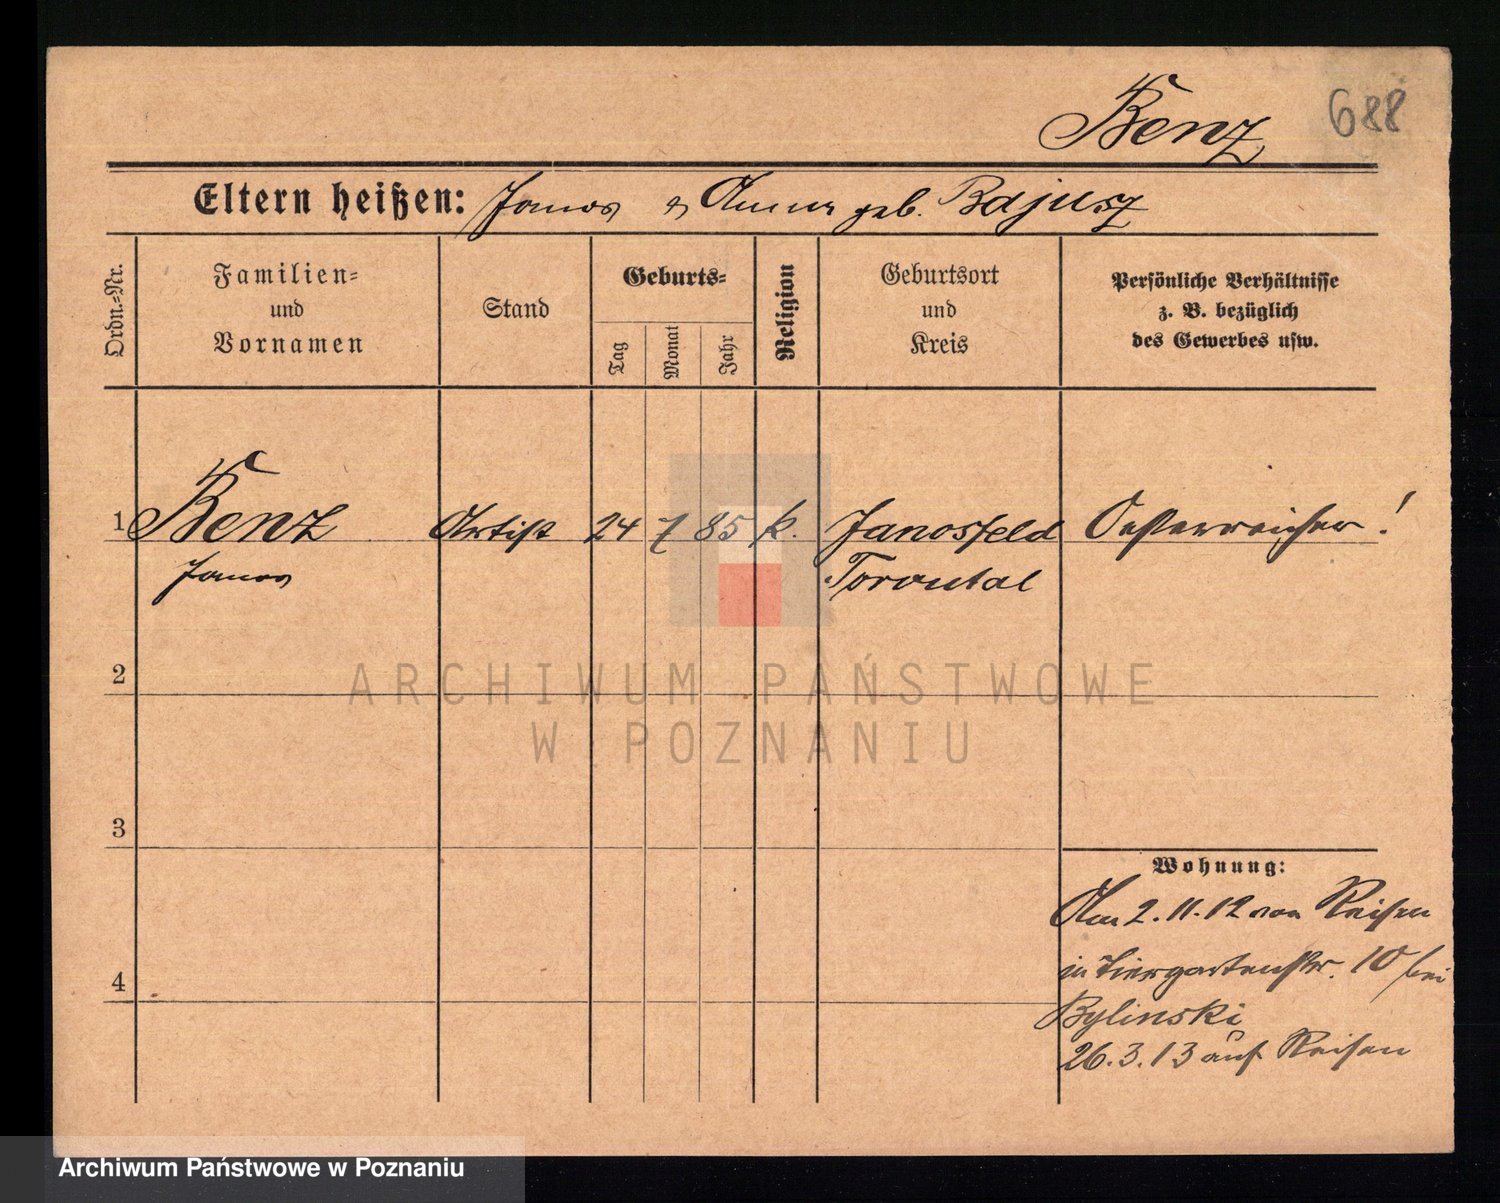 Benz 688
Eltern heißen: Janos & Anna geb. Bajusz
Ordn.=Nr.
Familien=
und
Vornamen
Stand
Geburts=
Tag
Monat
Jahr
Religion
Geburtsort
und
Kreis
Persönliche Verhältnisse
z. B. bezüglich
des Gewerbes usw.
1 Benz Artist 24 7 85 k. Janosfeld Oesterreicher!
Janos Torontal
2
ARCHIWUM PAŃSTWOWE
W POZNANIU
3
Wohnung:
Am 2.11.12 von Reisen
in Tiergartenstr. 10 bei
4
Bylinski
26.3.13 auf Reisen
Archiwum Państwowe w Poznaniu